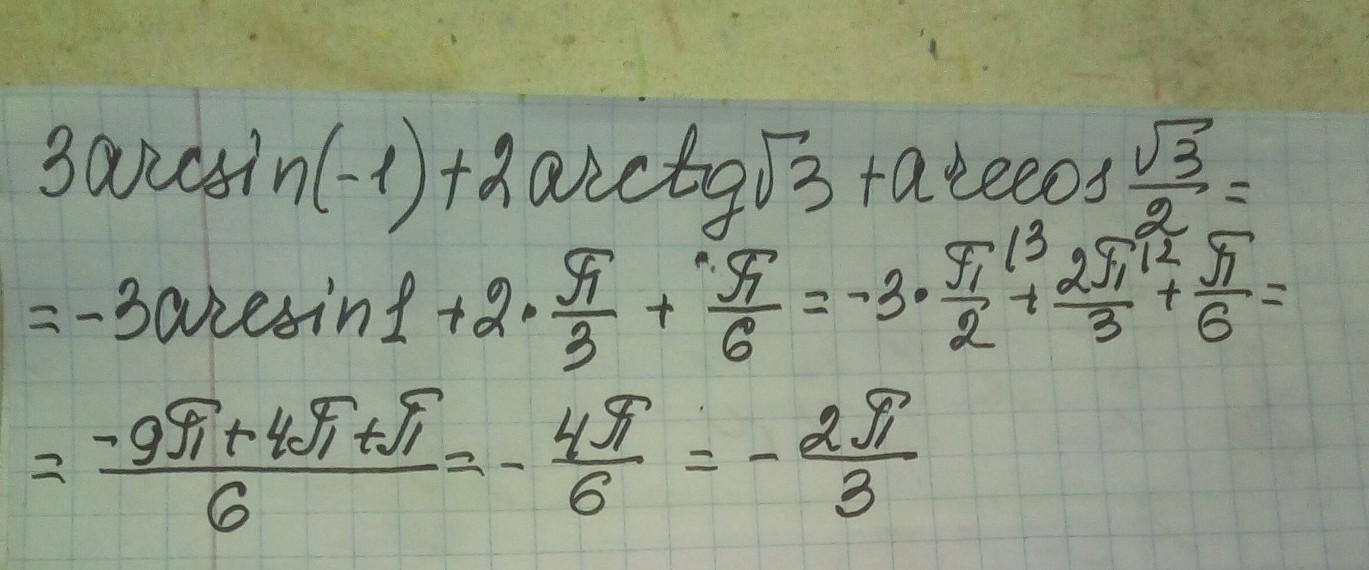 3arcsin(-1)+2arctg√3+arccos √3/2 =
= -3arcsin1+2·π/3 + π/6 = -3·π/2 \3 + 2π/3 \2 + π/6 =
= (-9π+4π+π)/6 = - 4π/6 = - 2π/3